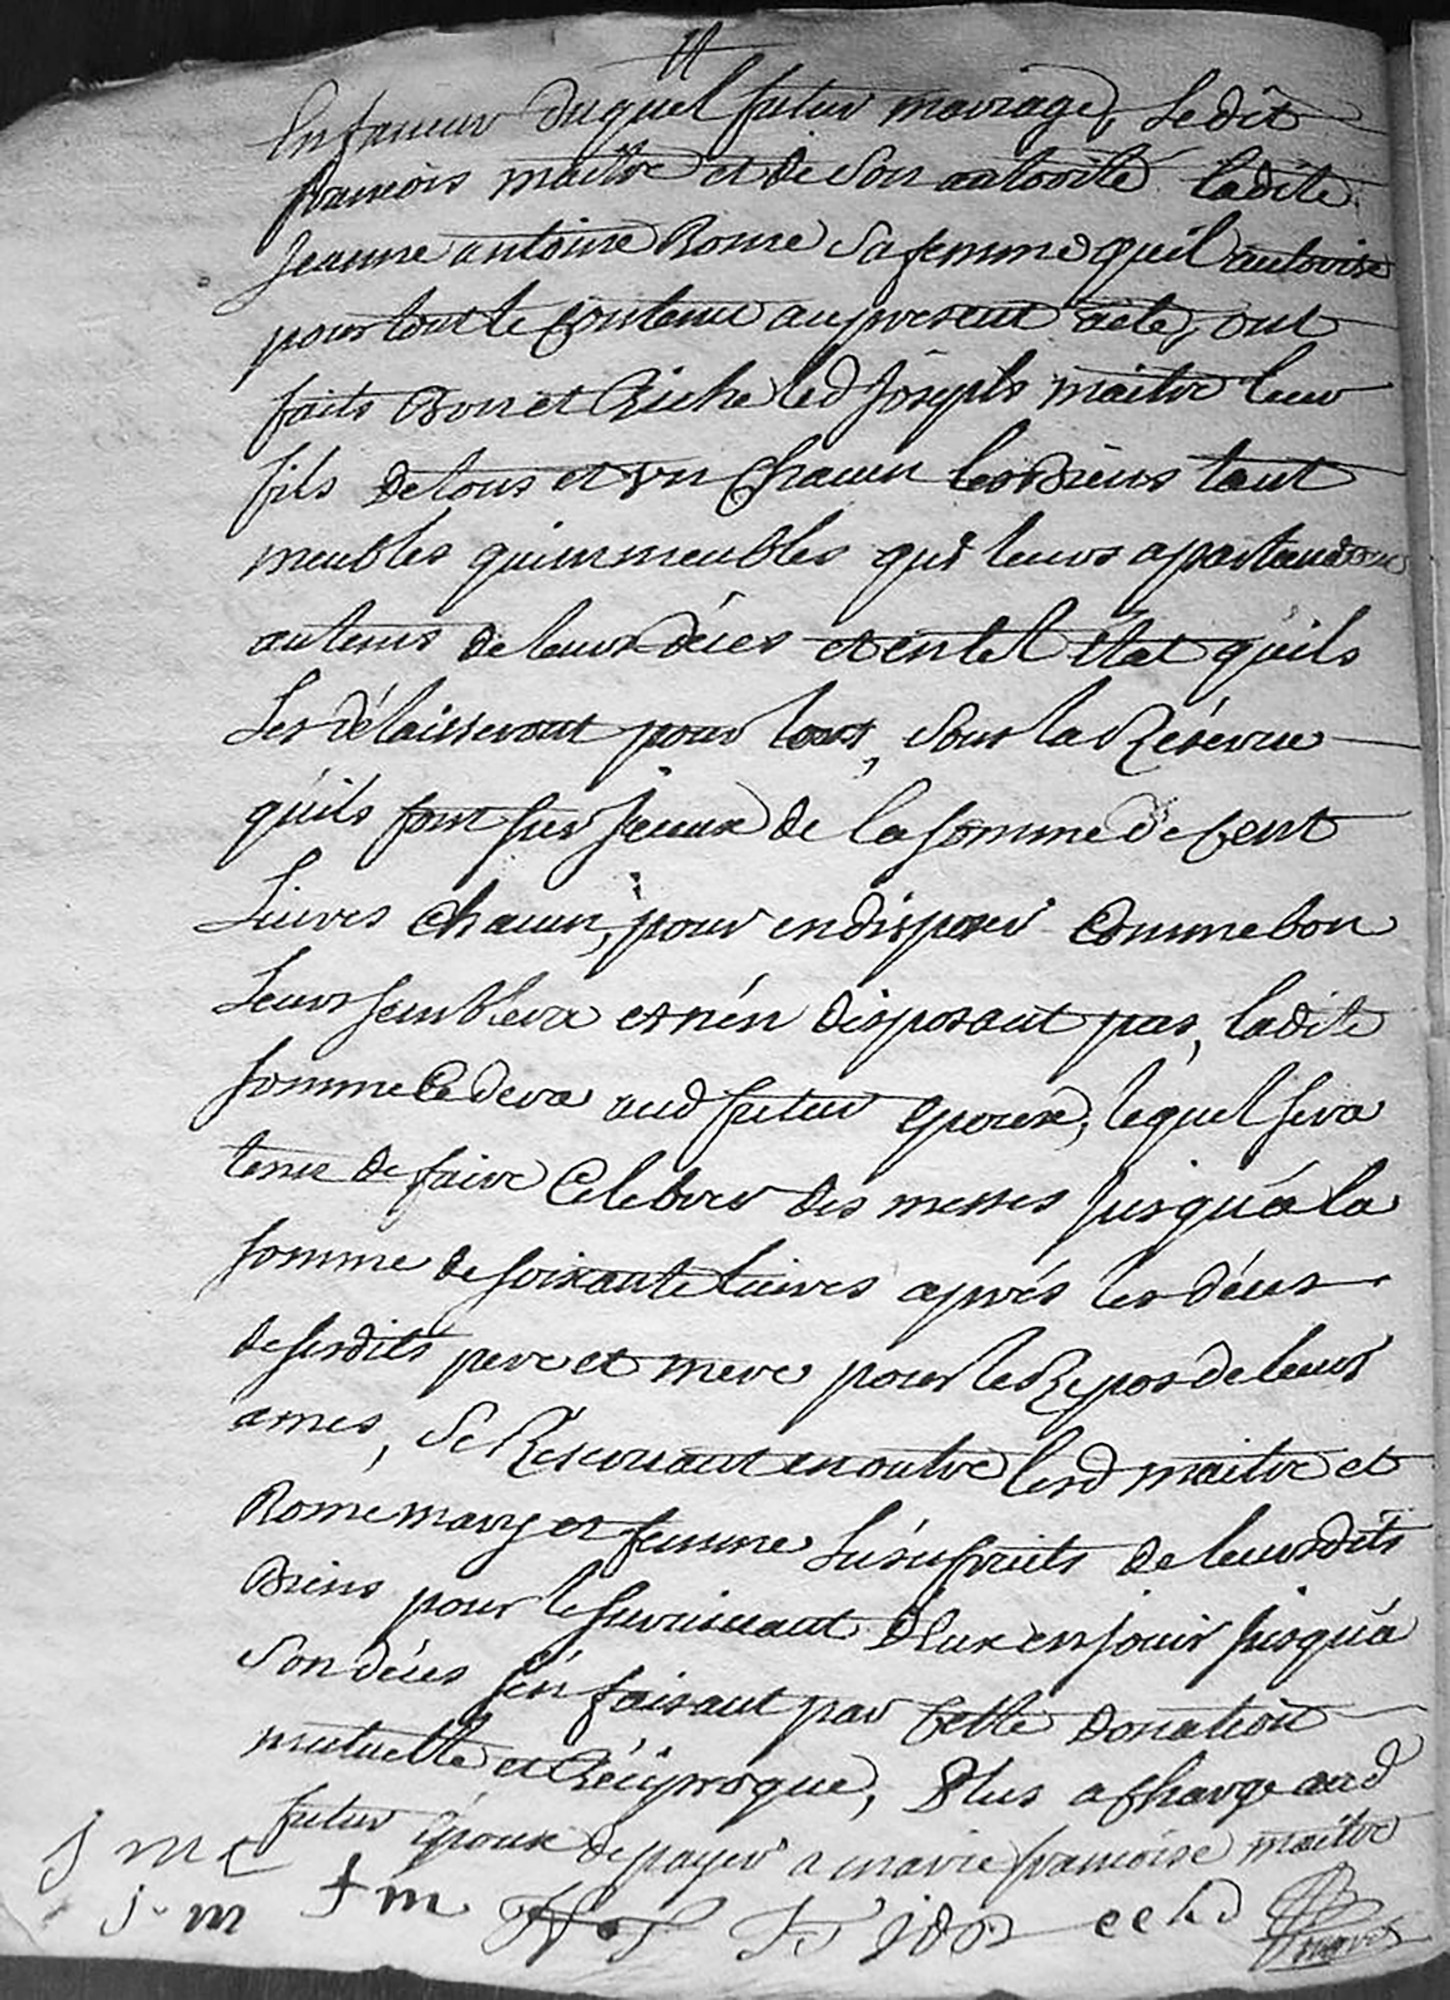 En faueur duquel futur mariage, Ledit
francois maitre et de son autorité ladite
Jeanne antoine Rome sa femme quil autorise
pour tout le Contenu au present acte, ont
faits Bon et Riche led Joseph maitre leur
fils de tous et un Chacun les Biens tant
meubles quimmeubles qui leurs apartiendront
au tems de leurs décès et en tel état quils
Les délaisseront pour lors, sous la Réserue
quils font sur iceux de la somme de Cent
Liures Chacun, pour en disposer Comme bon
Leurs semblera et n'en disposant pas, ladite
somme Cedera aud futur epoux, lequel sera
tenu de faire Celebrer des messes jusqu'à la
somme de soixante liures après les décès
desesdits pere et mere pour le Repos de leurs
ames, se Réseruant en outre lesd maitre et
Rome mary et femme L'usufruits de leursdits
Biens pour le suruiuant d'eux en jouir jusqu'à
son décès s'en faisant par Cette donation
mutuelle et Réciproque, Plus a Charge aud
futur époux de payer a marie francoise maitre
J m c
j. m f m